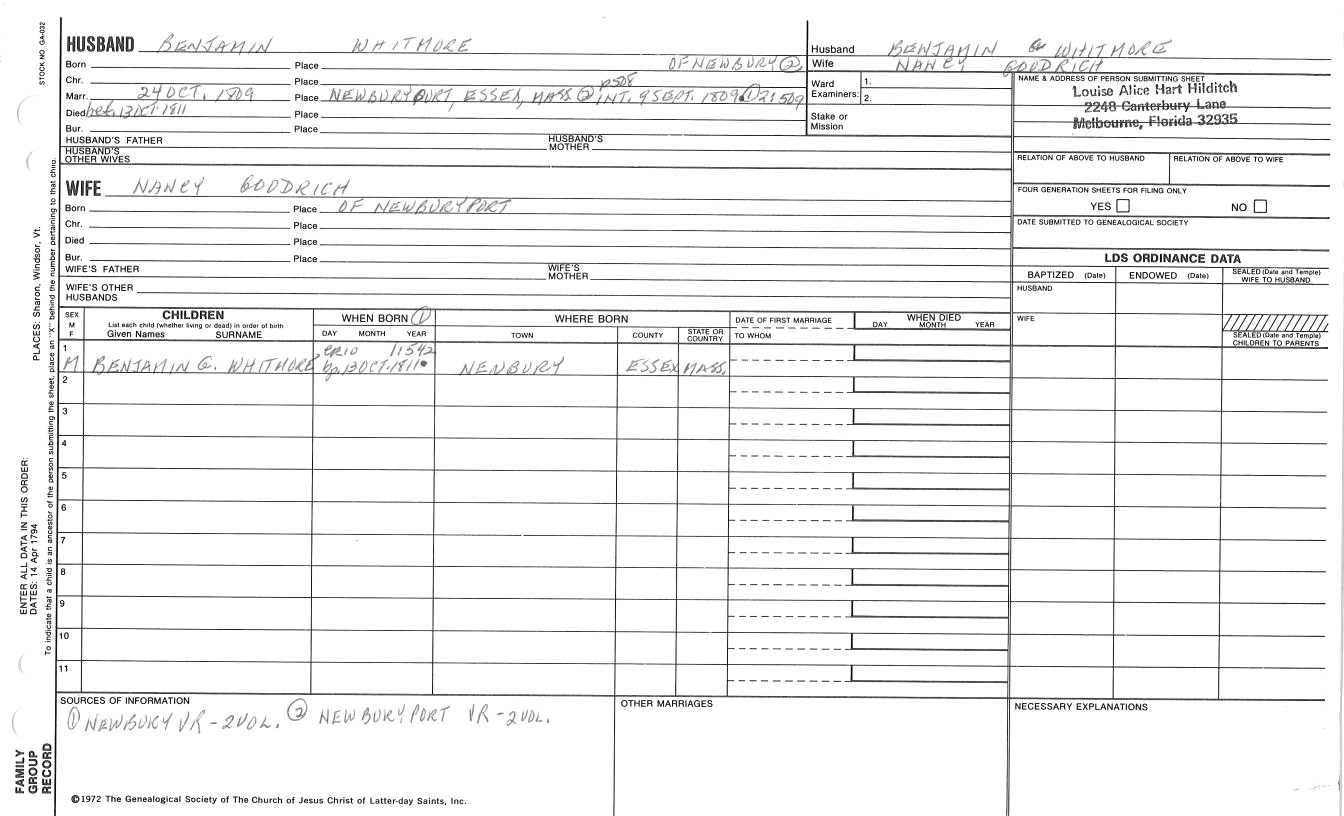 STOCK NO. GA-032
HUSBAND BENJAMIN WHITMORE
Born Place OF NEWBURY ②
Chr. Place p508
Marr. 24 OCT. 1809 Place NEWBURYPORT, ESSEX, MASS. ② INT. 9 SEPT. 1809 ① 2:509
Died bef. 13 OCT 1811 Place
Bur. Place
HUSBAND'S FATHER HUSBAND'S MOTHER
HUSBAND'S OTHER WIVES
Husband BENJAMIN WHITMORE
Wife NANCY GOODRICH
Ward Examiners: 1.
2.
Stake or Mission
NAME & ADDRESS OF PERSON SUBMITTING SHEET
Louise Alice Hart Hilditch
2248 Canterbury Lane
Melbourne, Florida 32935
RELATION OF ABOVE TO HUSBAND RELATION OF ABOVE TO WIFE
FOUR GENERATION SHEETS FOR FILING ONLY
YES NO
DATE SUBMITTED TO GENEALOGICAL SOCIETY
WIFE NANCY GOODRICH
Born Place OF NEWBURYPORT
Chr. Place
Died Place
Bur. Place
WIFE'S FATHER WIFE'S MOTHER
WIFE'S OTHER HUSBANDS
LDS ORDINANCE DATA
BAPTIZED (Date) ENDOWED (Date) SEALED (Date and Temple) WIFE TO HUSBAND
HUSBAND
WIFE
SEALED (Date and Temple) CHILDREN TO PARENTS
SEX M F
CHILDREN
List each child (whether living or dead) in order of birth
Given Names SURNAME
WHEN BORN ①
DAY MONTH YEAR
WHERE BORN
TOWN COUNTY STATE OR COUNTRY
DATE OF FIRST MARRIAGE
TO WHOM
WHEN DIED
DAY MONTH YEAR
1 CR10 1:542
M BENJAMIN G. WHITMORE bp. 13 OCT. 1811 NEWBURY ESSEX MASS.
2
3
4
5
6
7
8
9
10
11
SOURCES OF INFORMATION
① NEWBURY VR - 2 VOL. ② NEWBURYPORT VR - 2 VOL.
OTHER MARRIAGES
NECESSARY EXPLANATIONS
©1972 The Genealogical Society of The Church of Jesus Christ of Latter-day Saints, Inc.
PLACES: Sharon, Windsor, Vt.
To indicate that a child is an ancestor of the person submitting the sheet, place an "X" behind the number pertaining to that child.
ENTER ALL DATA IN THIS ORDER:
DATES: 14 Apr 1794
FAMILY
GROUP
RECORD